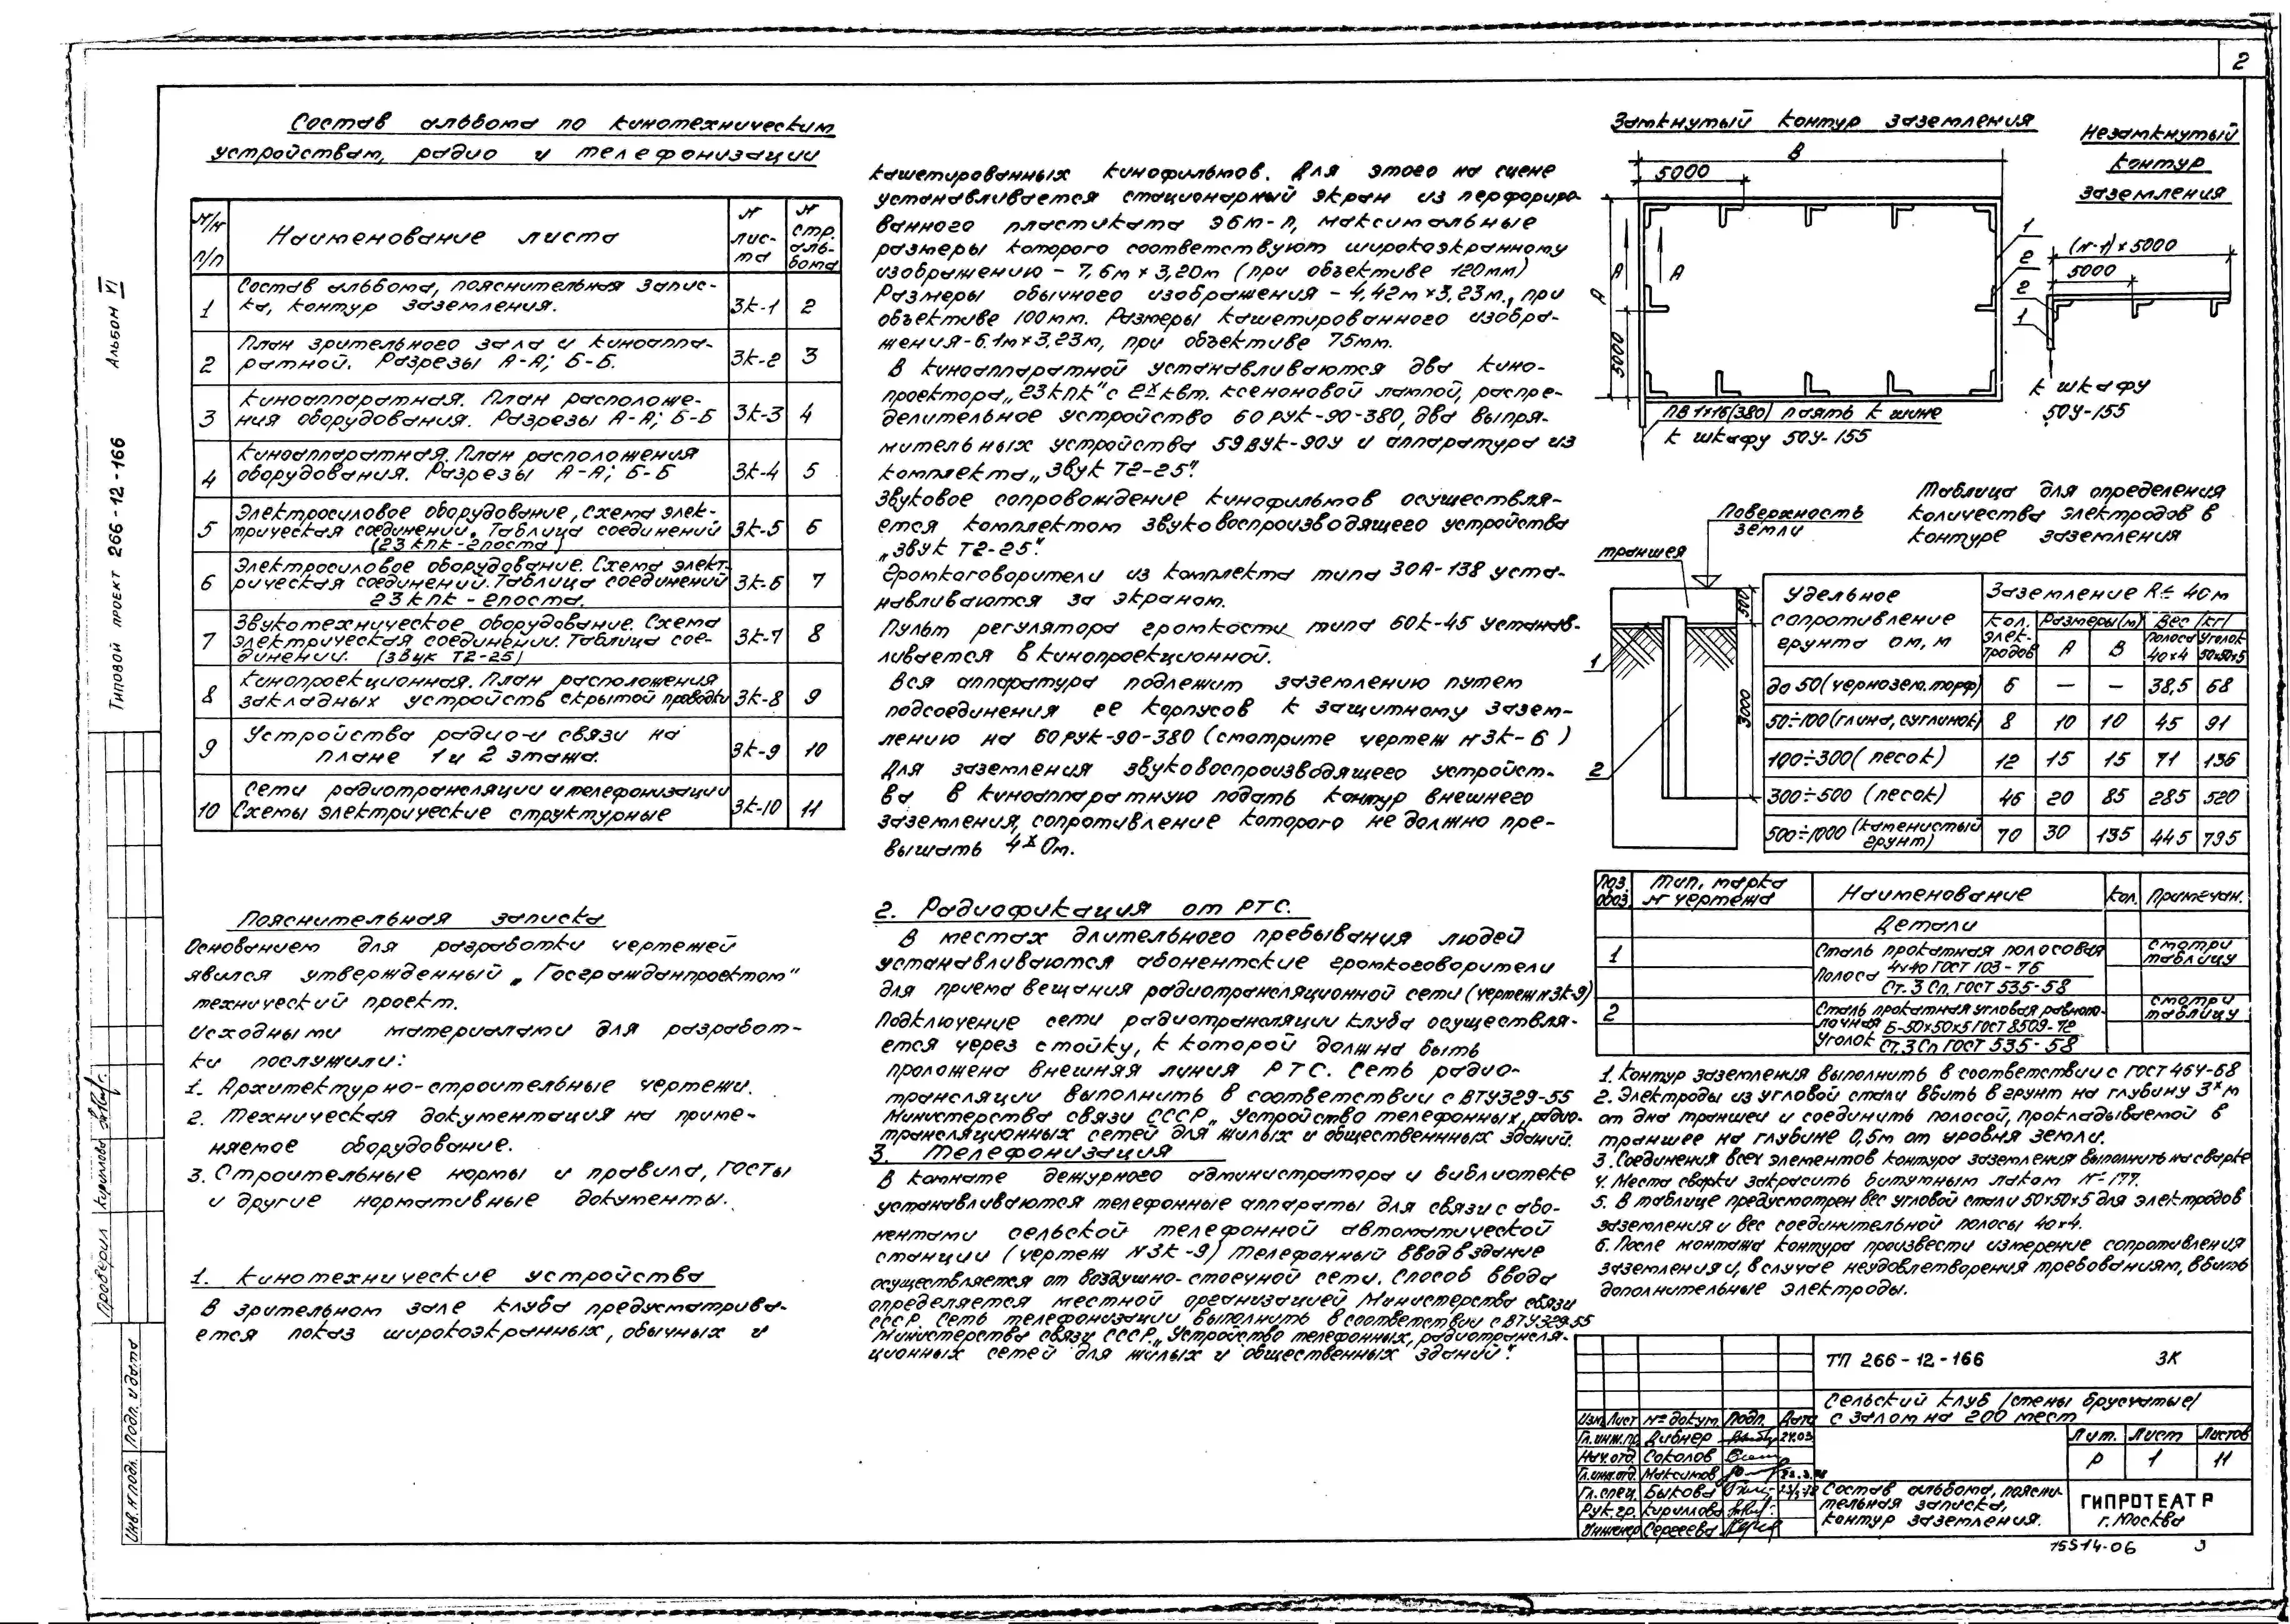 2
Альбом VI
Типовой проект 266-12-166
Проверил Кириллова
Инв. № подл. Подп. и дата
Состав альбома по кинотехническим
устройствам, радио и телефонизации
№/№ п/п Наименование листа № листа № стр. альбома
1 Состав альбома, пояснительная записка, контур заземления. ЗК-1 2
2 План зрительного зала и киноаппаратной. Разрезы А-А; Б-Б. ЗК-2 3
3 Киноаппаратная. План расположения оборудования. Разрезы А-А; Б-Б ЗК-3 4
4 Киноаппаратная. План расположения оборудования. Разрезы А-А; Б-Б ЗК-4 5
5 Электросиловое оборудование, схема электрическая соединений. Таблица соединений (23 КПК-2поста) ЗК-5 6
6 Электросиловое оборудование. Схема электрическая соединений. Таблица соединений 23 КПК-2поста. ЗК-6 7
7 Звукотехническое оборудование. Схема электрическая соединений. Таблица соединений. (звук Т2-25) ЗК-7 8
8 Кинопроекционная. План расположения закладных устройств скрытой проводки ЗК-8 9
9 Устройства радио и связи на плане 1 и 2 этажа. ЗК-9 10
10 Сети радиотрансляции и телефонизации Схемы электрические структурные ЗК-10 11
Пояснительная записка
Основанием для разработки чертежей
явился утвержденный „Госгражданпроектом"
технический проект.
Исходными материалами для разработ-
ки послужили:
1. Архитектурно-строительные чертежи.
2. Техническая документация на приме-
няемое оборудование.
3. Строительные нормы и правила, ГОСТы
и другие нормативные документы.
1. Кинотехнические устройства
В зрительном зале клуба предусматрива-
ется показ широкоэкранных, обычных и
кашетированных кинофильмов. Для этого на сцене
устанавливается стационарный экран из перфориро-
ванного пластиката ЭБМ-П, максимальные
размеры которого соответствуют широкоэкранному
изображению - 7,6м х 3,20м (при объективе 120мм)
Размеры обычного изображения - 4,42м х 3,23м., при
объективе 100мм. Размеры кашетированного изобра-
жения-6.1м х 3,23м, при объективе 75мм.
В киноаппаратной устанавливаются два кино-
проектора „23КПК" с 2х квт. ксеноновой лампой, распре-
делительное устройство 60 РУК-90-380, два выпря-
мительных устройства 59ВУК-90У и аппаратура из
комплекта „Звук Т2-25".
Звуковое сопровождение кинофильмов осуществля-
ется комплектом звуковоспроизводящего устройства
„Звук Т2-25".
Громкоговорители из комплекта типа 30А-138 уста-
навливаются за экраном.
Пульт регулятора громкости типа 60К-45 устанав-
ливается в кинопроекционной.
Вся аппаратура подлежит заземлению путем
подсоединения ее корпусов к защитному зазем-
лению на 60РУК-90-380 (смотрите чертеж №ЗК-6)
Для заземления звуковоспроизводящего устройст-
ва в киноаппаратную подать контур внешнего
заземления, сопротивление которого не должно пре-
вышать 4х Ом.
2. Радиофикация от РТС.
В местах длительного пребывания людей
устанавливаются абонентские громкоговорители
для приема вещания радиотрансляционной сети (чертеж №ЗК-9)
Подключение сети радиотрансляции клуба осуществля-
ется через стойку, к которой должна быть
проложена внешняя линия РТС. Сеть радио-
трансляции выполнить в соответствии с ВТУ329-55
Министерства связи СССР „Устройство телефонных, радио-
трансляционных сетей для жилых и общественных зданий.
3. Телефонизация
В комнате дежурного администратора и библиотеке
устанавливаются телефонные аппараты для связи с або-
нентами сельской телефонной автоматической
станции (чертеж №ЗК-9) Телефонный ввод в здание
осуществляется от воздушно-стоечной сети. Способ ввода
определяется местной организацией Министерства связи
СССР. Сеть телефонизации выполнить в соответствии с ВТУ329-55
Министерства связи СССР „Устройство телефонных, радиотрансля-
ционных сетей для жилых и общественных зданий".
Замкнутый контур заземления
В
5000
А
А
А
5000
1
2
ПВ1х16(380) паять к шине
к шкафу 50У-155
Незамкнутый
контур
заземления
(n-1)х5000
5000
2
1
к шкафу
50У-155
Поверхность
земли
траншея
500
3000
1
2
Таблица для определения
количества электродов в
контуре заземления
Удельное сопротивление грунта ом,м Заземление R≤4Ом
Кол. электродов Размеры(м) А В Вес /кг/ Полоса 40х4 Уголок 50х50х5
до 50 (чернозем. торф) 6 — — 38,5 68
50÷100 (глина, суглинок) 8 10 10 45 91
100÷300 (песок) 12 15 15 71 136
300÷500 (песок) 46 20 85 285 520
500÷1000 (каменистый грунт) 70 30 135 445 795
Поз. обоз. Тип, марка № чертежа Наименование Кол. Примечан.
Детали
1 Сталь прокатная полосовая смотри таблицу
Полоса 4х40 ГОСТ 103-76
Ст.3 Сп. ГОСТ 535-58
2 Сталь прокатная угловая равнополочная смотри таблицу
Уголок Б-50х50х5 ГОСТ 8509-72
Ст.3 Сп ГОСТ 535-58
1. Контур заземления выполнить в соответствии с ГОСТ 464-68
2. Электроды из угловой стали вбить в грунт на глубину 3х м
от дна траншеи и соединить полосой, прокладываемой в
траншее на глубине 0,5м от уровня земли.
3. Соединения всех элементов контура заземления выполнить на сварке
4. Места сварки закрасить битумным лаком №177.
5. В таблице предусмотрен вес угловой стали 50х50х5 для электродов
заземления и вес соединительной полосы 40х4.
6. После монтажа контура произвести измерение сопротивления
заземления и, в случае неудовлетворения требованиям, вбить
дополнительные электроды.
ТП 266-12-166 ЗК
Сельский клуб /стены брусчатые/
с залом на 200 мест
Изм. Лист № докум. Подп. Дата
Гл.инж.пр. Дибнер 24.03
Нач.отд. Соколов
Гл.инж.отд. Максимов
Гл.спец. Быкова
Рук.гр. Кириллова
Инженер Сергеева
Лит. Лист Листов
Р 1 11
Состав альбома, поясни-
тельная записка,
контур заземления.
ГИПРОТЕАТР
г. Москва
15514-06 3